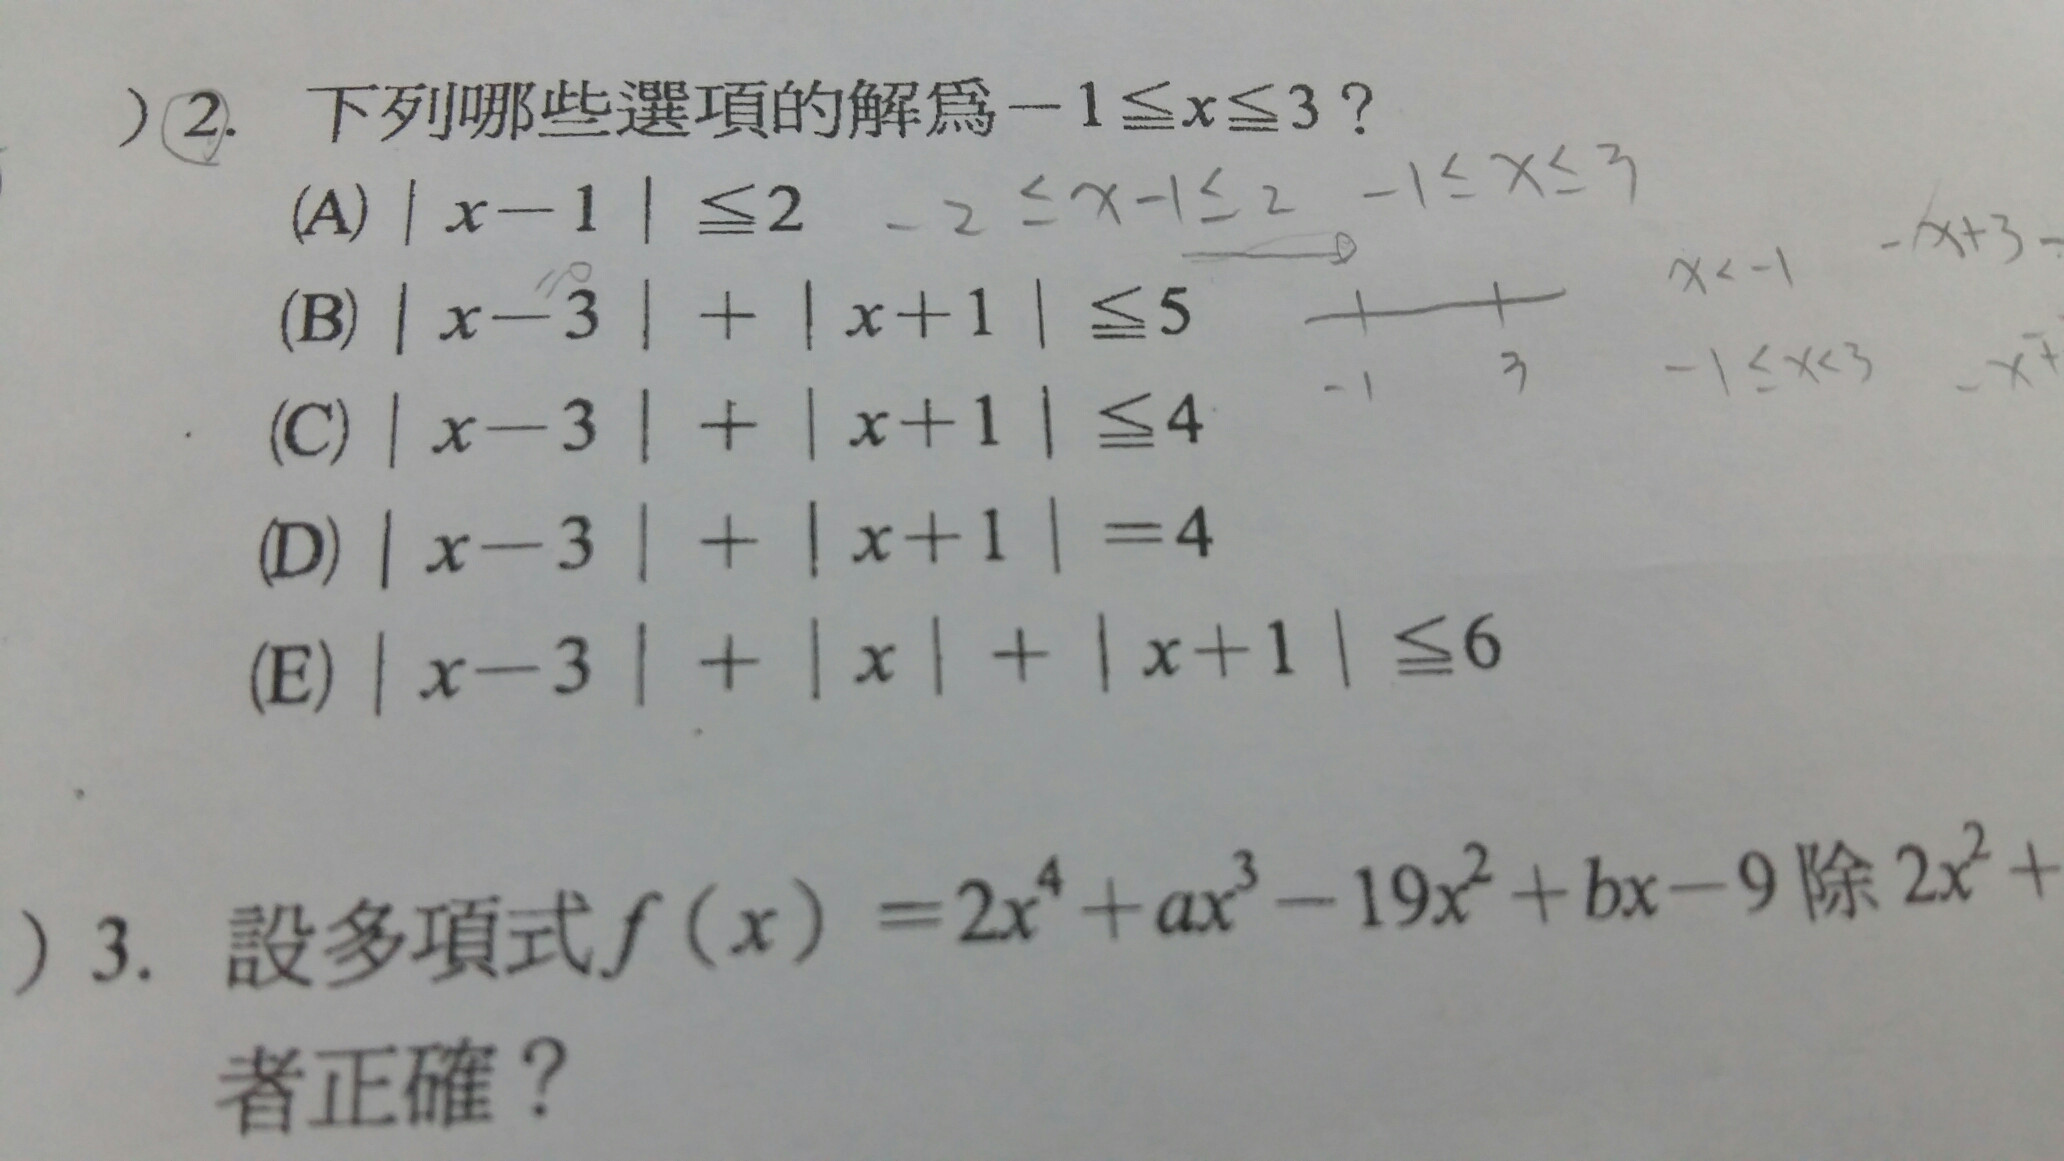 ) 2. 下列哪些選項的解為－1≦x≦3？
(A)｜x－1｜≦2 -2≤x-1≤2 -1≤x≤3
(B)｜x－3｜＋｜x＋1｜≦5 x<-1 -x+3-
-1 3 -1≤x<3 -x+
(C)｜x－3｜＋｜x＋1｜≦4
(D)｜x－3｜＋｜x＋1｜＝4
(E)｜x－3｜＋｜x｜＋｜x＋1｜≦6
) 3. 設多項式f(x)＝2x⁴＋ax³－19x²＋bx－9除2x²＋
者正確？